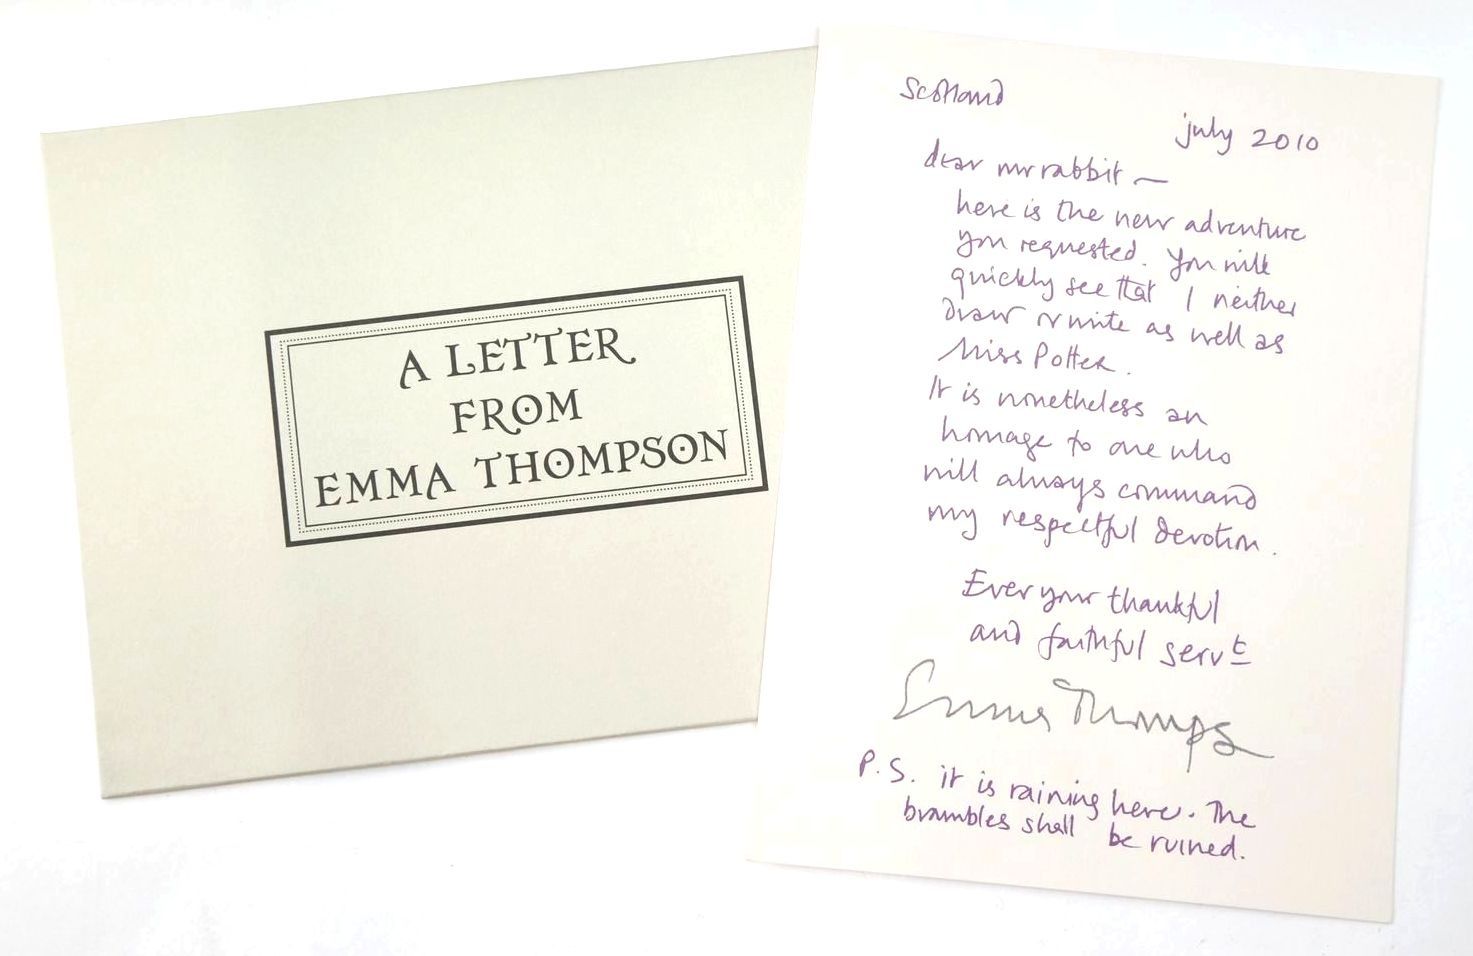 A LETTER
FROM
EMMA THOMPSON
Scotland
july 2010
dear mr rabbit —
here is the new adventure
you requested. You will
quickly see that I neither
draw or write as well as
Miss Potter.
It is nonetheless an
homage to one who
will always command
my respectful devotion.
Ever your thankful
and faithful servt
Emma Thompson
P.S. it is raining here. The
brambles shall be ruined.